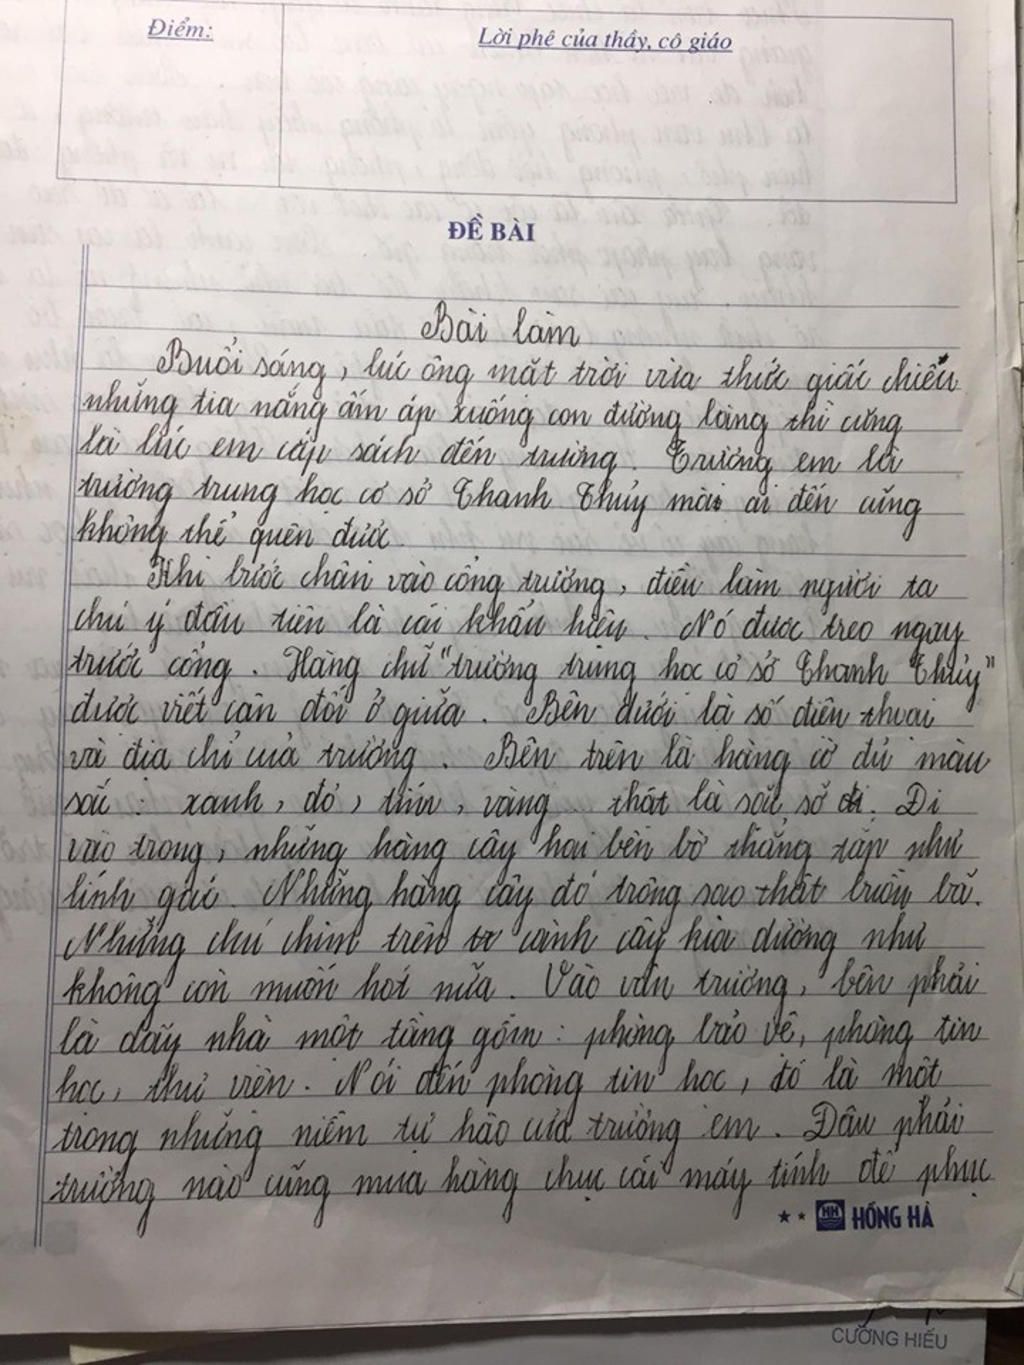 Điểm:
Lời phê của thầy, cô giáo
ĐỀ BÀI
Bài làm
Buổi sáng, lúc ông mặt trời vừa thức giấc chiếu
những tia nắng ấm áp xuống con đường làng thì cũng
là lúc em cắp sách đến trường. Trường em là
trường trung học cơ sở Thanh Thủy mà ai đến cũng
không thể quên được.
Khi bước chân vào cổng trường, điều làm người ta
chú ý đầu tiên là cái khẩu hiệu. Nó được treo ngay
trước cổng. Hàng chữ "trường trung học cơ sở Thanh Thủy"
được viết cân đối ở giữa. Bên dưới là số điện thoại
và địa chỉ của trường. Bên trên là hàng cờ đủ màu
sắc: xanh, đỏ, tím, vàng... thật là sặc sỡ. Đi
vào trong, những hàng cây hai bên bờ thẳng tắp như
lính gác. Những hàng cây đó trông sao thật buồn bã.
Những chú chim trên cành cây kia dường như
không còn muốn hót nữa. Vào sân trường, bên phải
là dãy nhà một tầng gồm: phòng bảo vệ, phòng tin
học, thư viện. Nói đến phòng tin học, đó là một
trong những niềm tự hào của trường em. Đâu phải
trường nào cũng mua hàng chục cái máy tính để phục
HH HỒNG HÀ
CƯỜNG HIẾU